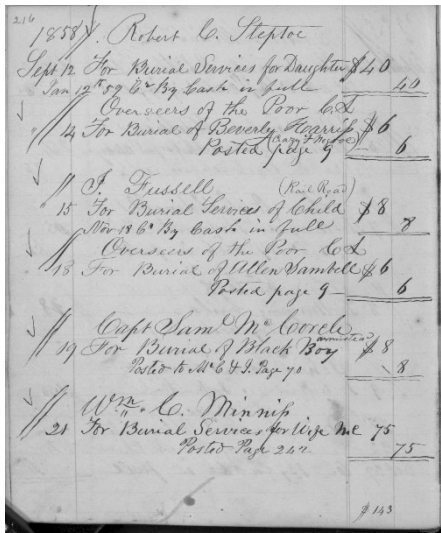 216
1858 Robert C. Steptoe
Sept 12 For Burial Services for Daughter $40
Jan 12th 59 Cr By Cash in full 40
Overseers of the Poor C.L
" 14 For Burial of Beverly Harris $6
(Crazy F Negro)
Posted page 9 6
J. Fussell (Rail Road)
" 15 For Burial Services of Child $8
Nov 18 Cr By Cash in full 8
Overseers of the Poor C L
" 18 For Burial of Ullen $6
Posted page 9 6
Capt Saml McCorcle
" 19 For Burial of Black Boy $8
Posted to Mc C & J. Page 70 8
Wm C. Minnis
" 21 For Burial Services for Wife MC 75
Posted Page 242. 75
$143